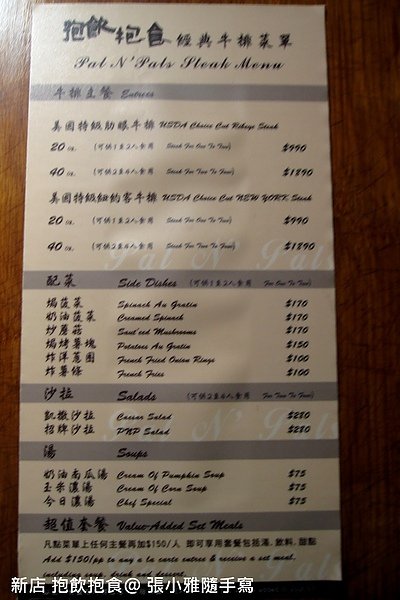 抱飲抱食 經典牛排菜單
Pal N' Pals Steak Menu
牛排主餐 Entrées
美國特級肋眼牛排 USDA Choice Cut Ribeye Steak
20 oz. (可供1至2人食用 Steak For One To Two) $990
40 oz. (可供2至4人食用 Steak For Two To Four) $1890
美國特級紐約客牛排 USDA Choice Cut NEW YORK Steak
20 oz. (可供1至2人食用 Steak For One To Two) $990
40 oz. (可供2至4人食用 Steak For Two To Four) $1890
Pal N' Pals
配菜 Side Dishes (可供2至4人食用 For Two To Four)
焗菠菜 Spinach Au Gratin $170
奶油菠菜 Creamed Spinach $170
炒蘑菇 Saut'eed Mushrooms $170
焗烤薯塊 Potatoes Au Gratin $150
炸洋蔥圈 French Fried Onion Rings $100
炸薯條 French Fries $100
沙拉 Salads (可供2至4人食用 For Two To Four)
凱撒沙拉 Caesar Salad $280
招牌沙拉 PNP Salad $280
Pal N' Pals
湯 Soups
奶油南瓜湯 Cream Of Pumpkin Soup $75
玉米濃湯 Cream Of Corn Soup $75
今日濃湯 Chef Special $75
超值套餐 Value-Added Set Meals
凡點菜單上任何主餐再加$150/人 即可享用套餐包括湯,飲料,甜點
Add $150/pp to any a la carte entree & receive a set meal,
including soup, drink and dessert.
新店 抱飲抱食@ 張小雅隨手寫